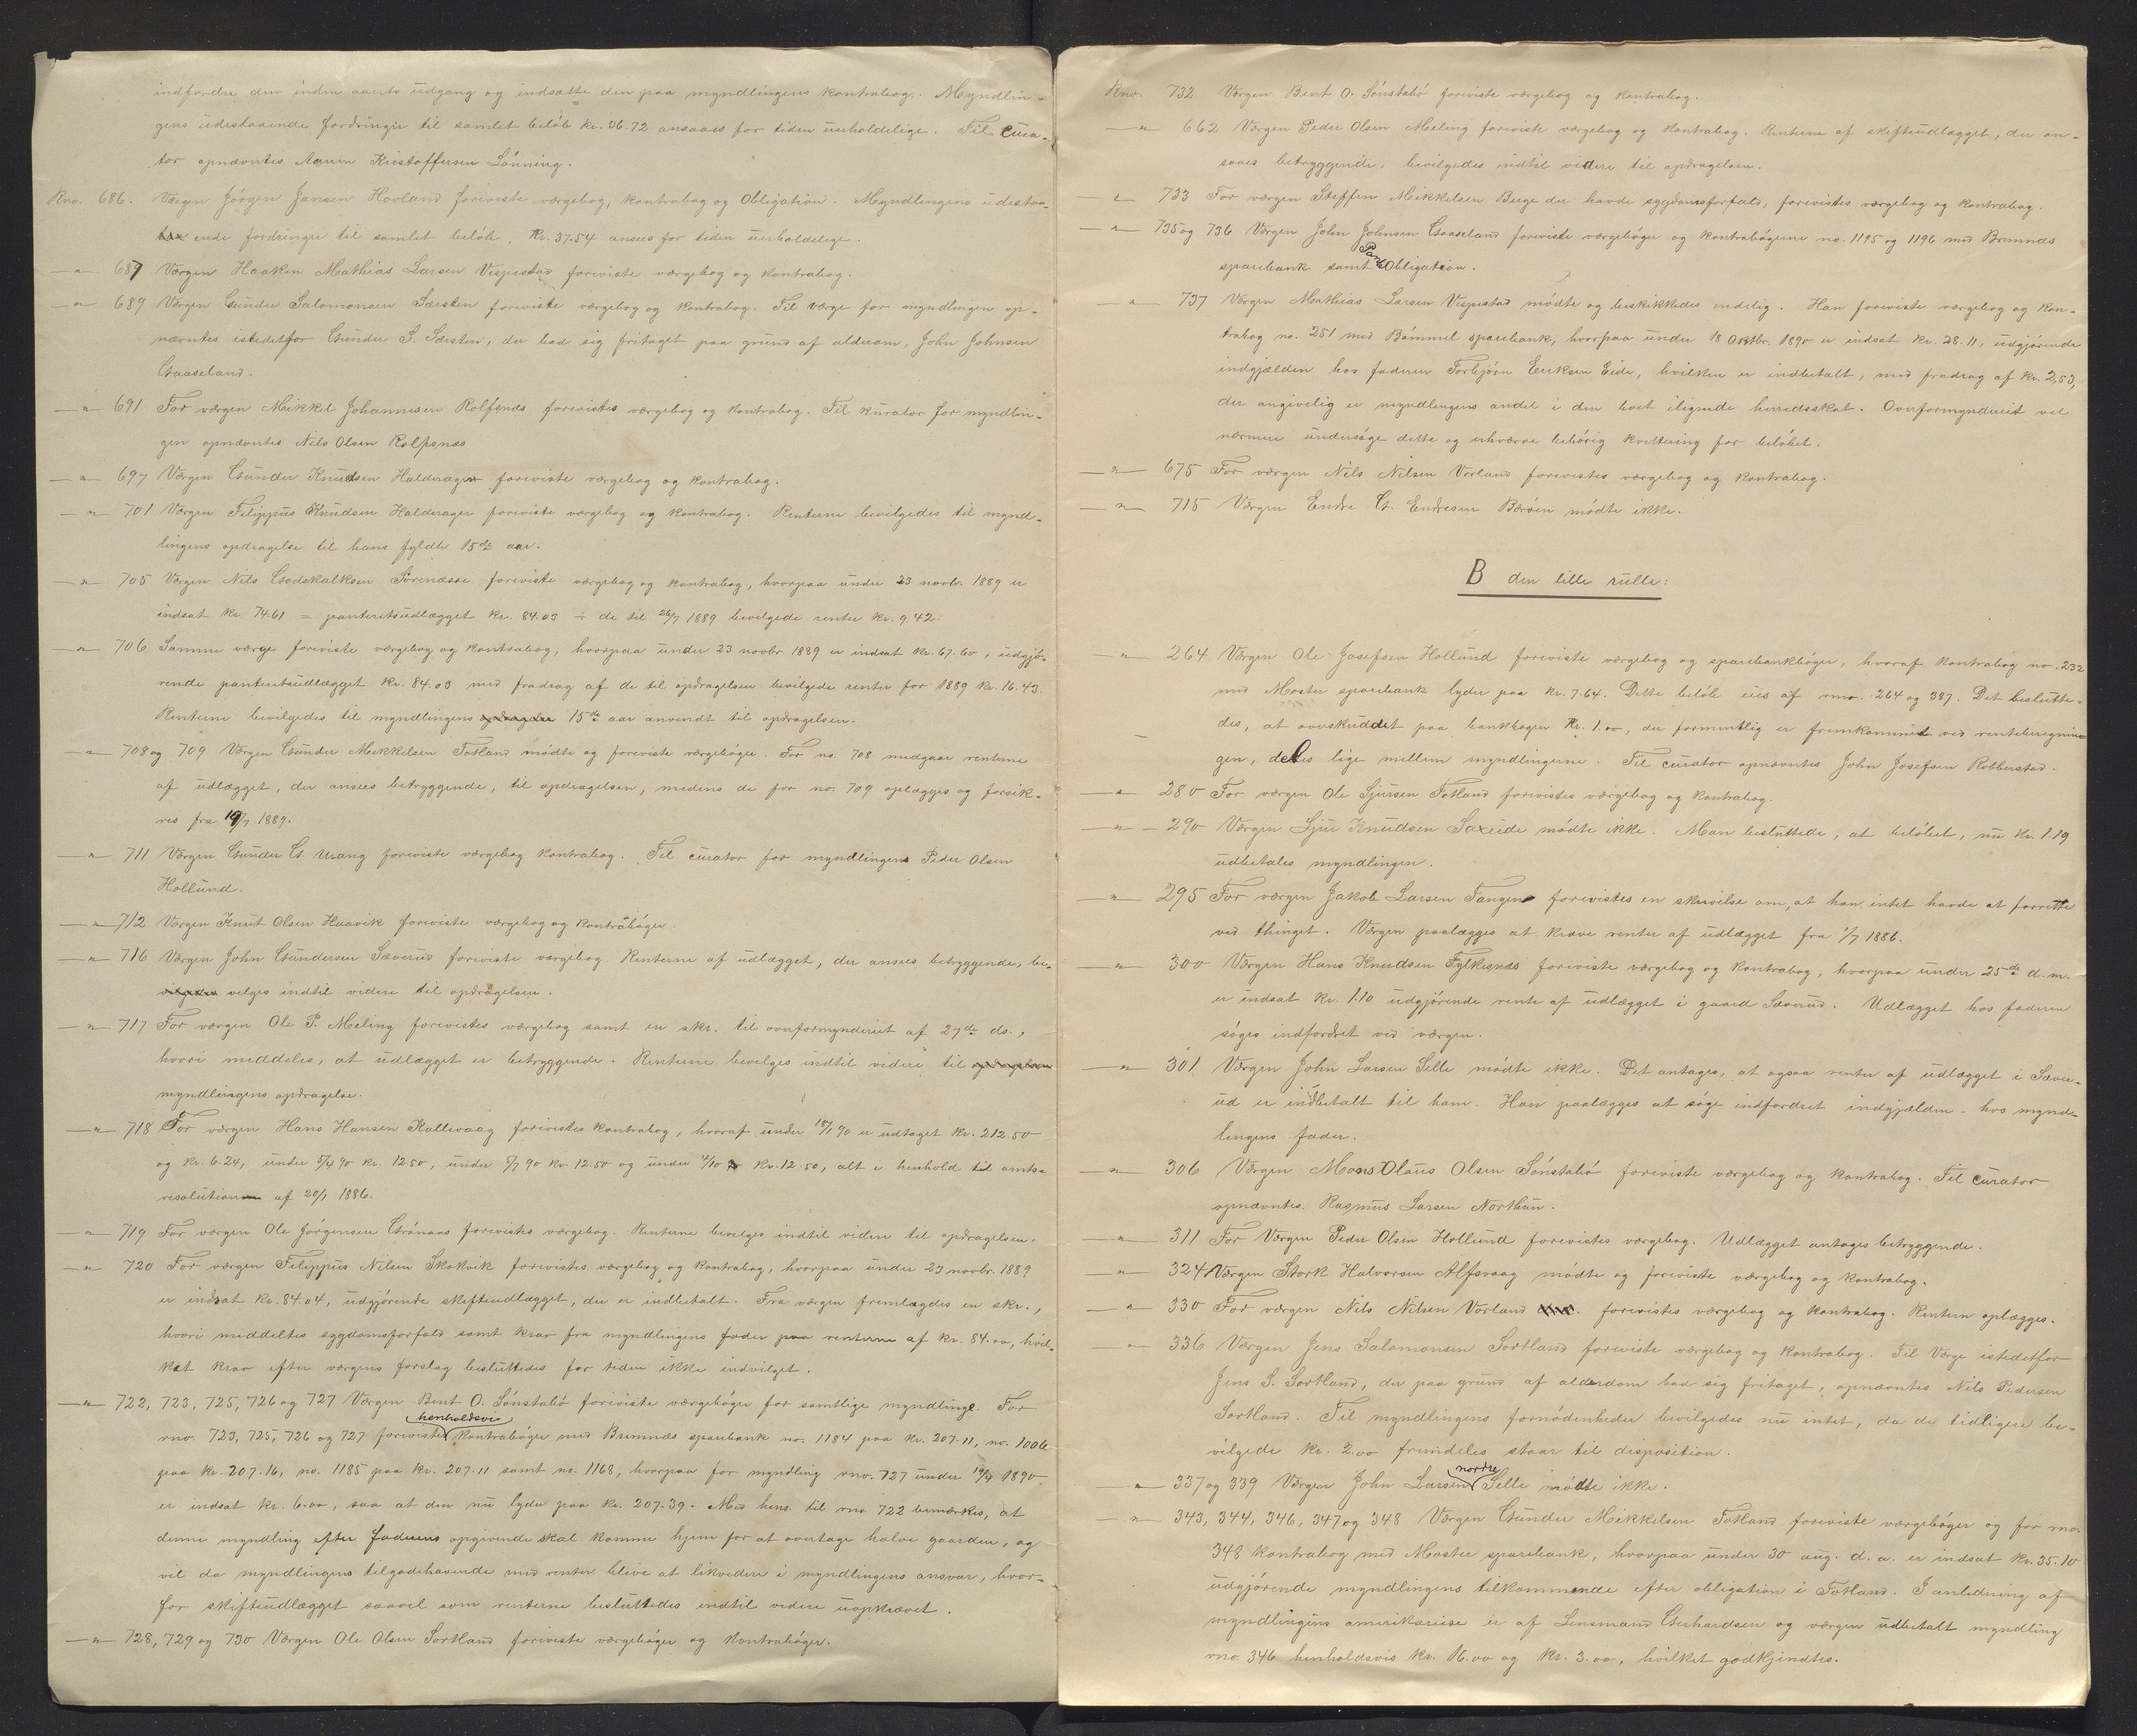 indfordre den inden aarets udgang og indsætte den paa myndlingens kontrabog. Myndlin-
gens udestaaende fordringer til samlet beløb kr. 36.72 ansaaes for tiden uerholdelige. Til Cura-
tor opnævntes Aamu Kristoffersen Lönning.
Rno. 686. Værgen Jörgen Jansen Hovland foreviste værgebog, kontrabog og Obligation. Myndlingens udestaa-
ende fordringer til samlet beløb, Kr. 37.54 ansees for tiden uerholdelige.
—"— 687 Værgen Haaken Mathias Larsen Vespestad foreviste værgebog og kontrabog.
—"— 689 Værgen Gunder Salomonsen Særsten foreviste værgebog og kontrabog. Til værge for myndlingen op-
nævntes istedetfor Gunder S. Særsten, der bad sig fritaget paa grund af alderdom, John Johnsen
Gaaseland.
—"— 691 For værgen Mikkel Johannesen Rolfsnæs forevistes værgebog og kontrabog. Til kurator for myndlin-
gen opnævntes Nils Olsen Rolfsnæs
—"— 697 Værgen Gunder Knudsen Halderager foreviste værgebog og kontrabog.
—"— 701 Værgen Filippus Knudsen Halderager foreviste værgebog og kontrabog. Renterne bevilgedes til mynd-
lingens opdragelse til hans fyldte 15de aar.
—"— 705 Værgen Nils Godskalksen Sörenæsse foreviste værgebog og kontrabog, hvorpaa under 23 novbr. 1889 er
indsat kr. 74.61 = panteretsudlægget kr. 84.03 ÷ de til 26/7 1889 bevilgede renter kr. 9.42.
—"— 706 Samme værge foreviste værgebog og kontrabog, hvorpaa under 23 novbr. 1889 er indsat kr. 67.60, udgjö-
rende panteretsudlægget kr. 84.03 med fradrag af de til opdragelsen bevilgede renter for 1889 kr. 16.43.
Renterne bevilgedes til myndlingens 15de aar anvendt til opdragelsen.
—"— 708 og 709 Værgen Gunder Mikkelsen Totland mödte og foreviste værgebøger. For no. 708 medgaar renterne
af udlægget, der ansees betryggende, til opdragelsen, medens de for no. 709 oplægges og forsik-
res fra 19/7 1889.
—"— 711 Værgen Gunder G. Urang foreviste værgebog kontrabog. Til curator for myndlingens Peder Olsen
Hollund.
—"— 712 Værgen Knut Olsen Haavik foreviste værgebog og kontrabøger
—"— 716 Værgen John Gundersen Sæverud foreviste værgebog. Renterne af udlægget, der ansees betryggende, be-
velges indtil videre til opdragelsen.
—"— 717 For værgen Ole P. Meling forevistes værgebog samt en skr. til overformynderiet af 27de ds.,
hvori meddeles, at udlægget er betryggende. Renterne bevelges indtil videre til
myndlingens opdragelse.
—"— 718 For værgen Hans Hansen Kallevaag forevistes kontrabog, hvoraf under 18/1 90 er udtaget kr. 212.50
og kr. 6.24, under 5/4 90 kr. 12.50, under 5/7 90 kr. 12.50 og under 4/10 kr. 12.50, alt i henhold til amts-
resolution af 20/1 1886.
—"— 719 For værgen Ole Jörgensen Grönaas forevistes værgebog. Renterne bevelges indtil videre til opdragelsen.
—"— 720 For værgen Filippus Nilsen Skokvik forevistes værgebog og kontrabog, hvorpaa under 23 novbr. 1889
er indsat kr. 84.04, udgjörende skifteudlægget, der er indbetalt. Fra værgen fremlagdes en skr.,
hvori meddeltes sygdomsforfald samt krav fra myndlingens fader paa renterne af kr. 84.00, hvil-
ket krav efter værgens forslag besluttedes for tiden ikke indvilget.
—"— 722, 723, 725, 726 og 727 Værgen Bent O. Sönstabö foreviste værgebøger for samtlige myndlinge. For
henholdsvis
rno. 723, 725, 726 og 727 forevistes kontrabøger med Bremnæs sparebank no. 1184 paa kr. 207.11, no. 1006
paa kr. 207.16, no. 1185 paa kr. 207.11 samt no. 1168, hvorpaa for myndling rno. 727 under 19/4 1890
er indsat kr. 6.00, saa at den nu lyder paa kr. 207.39. Med hens. til rno. 722 bemærkes, at
denne myndling efter faderens opgivende skal komme hjem for at overtage halve gaarden, og
vil da myndlingens tilgodehavende med renter blive at likvidere i myndlingens ansvar, hvor-
for skifteudlægget saavel som renterne besluttedes indtil videre uopkrævet.
—"— 728, 729 og 730 Værgen Ole Olsen Sortland foreviste værgebøger og kontrabøger.
Rno. 732 Værgen Bent O. Sönstabö foreviste værgebog og kontrabog.
—"— 662 Værgen Peder Olsen Meling foreviste værgebog og kontrabog. Renterne af skifteudlægget, der an-
saaes betryggende, bevilgedes indtil videre til opdragelsen.
—"— 733 For værgen Steffen Mikkelsen Berge der havde sygdomsforfald, forevistes værgebog og kontrabog.
—"— 735 og 736 Værgen John Johnsen Gaaseland foreviste værgebøger og kontrabøgerne no. 1195 og 1196 med Bremnæs
Pante
sparebank samt Obligation.
—"— 737 Værgen Mathias Larsen Vespestad mödte og beskikkedes endelig. Han foreviste værgebog og kon-
trabog no. 251 med Bömmel sparebank, hvorpaa under 18 Oktbr. 1890 er indsat kr. 28.11, udgjörende
indgjælden hos faderen Torbjörn Eriksen Eide, hvilken er indbetalt, med fradrag af kr. 2,53,
der angivelig er myndlingens andel i den boet ilignede herredsskat. Overformynderiet vil
nærmere undersöge dette og erhverve behörig kvittering for belöbet.
—"— 675 For værgen Nils Nilsen Vorland forevistes værgebog og kontrabog.
—"— 715 Værgen Endre G. Endresen Bæröen mödte ikke.
B den lille rulle:
—"— 264 Værgen Ole Josefsen Hollund foreviste værgebog og sparebankbøger, hvoraf kontrabog no. 232
med Moster sparebank lyder paa kr. 7.64. Dette belöb eies af rno. 264 og 387. Det beslutte-
des, at overskuddet paa bankbogen Kr. 1.00, der formentlig er fremkommet ved renteberegnin-
gen, deles lige mellem myndlingerne. Til curator opnævntes John Josefsen Rolberstad.
—"— 280 For værgen Ole Sjursen Totland forevistes værgebog og kontrabog.
—"— 290 Værgen Sjur Knudsen Saxeide mödte ikke. Man besluttede, at belöbet, nu kr. 1.19
udbetales myndlingen.
—"— 295 For værgen Jakob Larsen Tangen forevistes en skrivelse om, at han intet havde at forrette
ved thinget. Værgen paalægges at kræve renter af udlægget fra 1/7 1886.
—"— 300 Værgen Hans Knudsen Fylkesnæs foreviste værgebog og kontrabog, hvorpaa under 25de d.m.
er indsat kr. 1.10 udgjörende rente af udlægget i gaard Sæverud. Udlægget hos faderen
söges indfordret ved værgen.
—"— 301 Værgen John Larsen Selle mödte ikke. Det antages, at ogsaa renter af udlægget i Sæver-
ud er indbetalt til ham. Han paalægges at söge indfordret indgjælden hos mynd-
lingens fader.
—"— 306 Værgen Mons Olaus Olsen Sönstabö foreviste værgebog og kontrabog. Til Curator
opnævntes Rasmus Larsen Northun.
—"— 311 For Værgen Peder Olsen Hollund forevistes værgebog. Udlægget antages betryggende.
—"— 324 Værgen Stork Halvorsen Alfsvaag mödte og foreviste værgebog og kontrabog.
—"— 330 For værgen Nils Nilsen Vorland forevistes værgebog og kontrabog. Renten oplægges.
—"— 336 Værgen Jens Salomonsen Sortland foreviste værgebog og kontrabog. Til Værge istedetfor
Jens S. Sortland, der paa grund af alderdom bad sig fritaget, opnævntes Nils Pedersen
Sortland. Til myndlingens fornödenheder bevilgedes nu intet, da de tidligere be-
vilgede kr. 2.00 fremdeles staar til disposition.
nordre
—"— 337 og 339 Værgen John Larsen Selle mödte ikke.
—"— 343, 344, 346, 347 og 348 Værgen Gunder Mikkelsen Totland foreviste værgebøger og for rno.
348 kontrabog med Moster sparebank, hvorpaa under 30 aug. d. a. er indsat kr. 35.10
udgjörende myndlingens tilkommende efter obligation i Totland. I anledning af
myndlingens amerikareise er af Lensmand Gerhardsen og værgen udbetalt myndling
rno. 346 henholdsvis kr. 16.00 og kr. 3.00, hvilket godkjendtes.